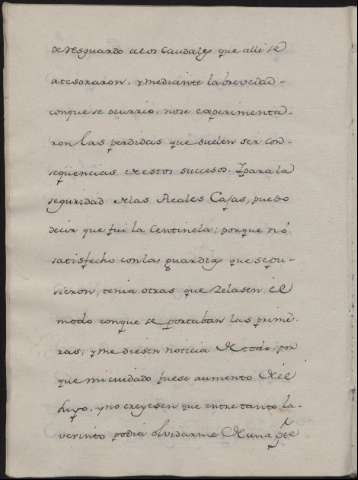 de resguardo a los Caudales que alli se
atesoraron, y mediante la brevedad
con que se ocurrio, no se experimenta
ron las perdidas que suelen ser con
sequencias de estos sucesos. Y para la
seguridad de las Reales Casas, puedo
decir que fui la Centinela; porque no
satisfecho con las guardias que se pu
sieron, tenia otras que zelasen el
modo con que se portaban las prime
ras, y me diesen noticia de todo, por
que mi cuidado fuese aumento del
suyo, y no creyesen que entre tanto la
verinto podia olvidarme de una